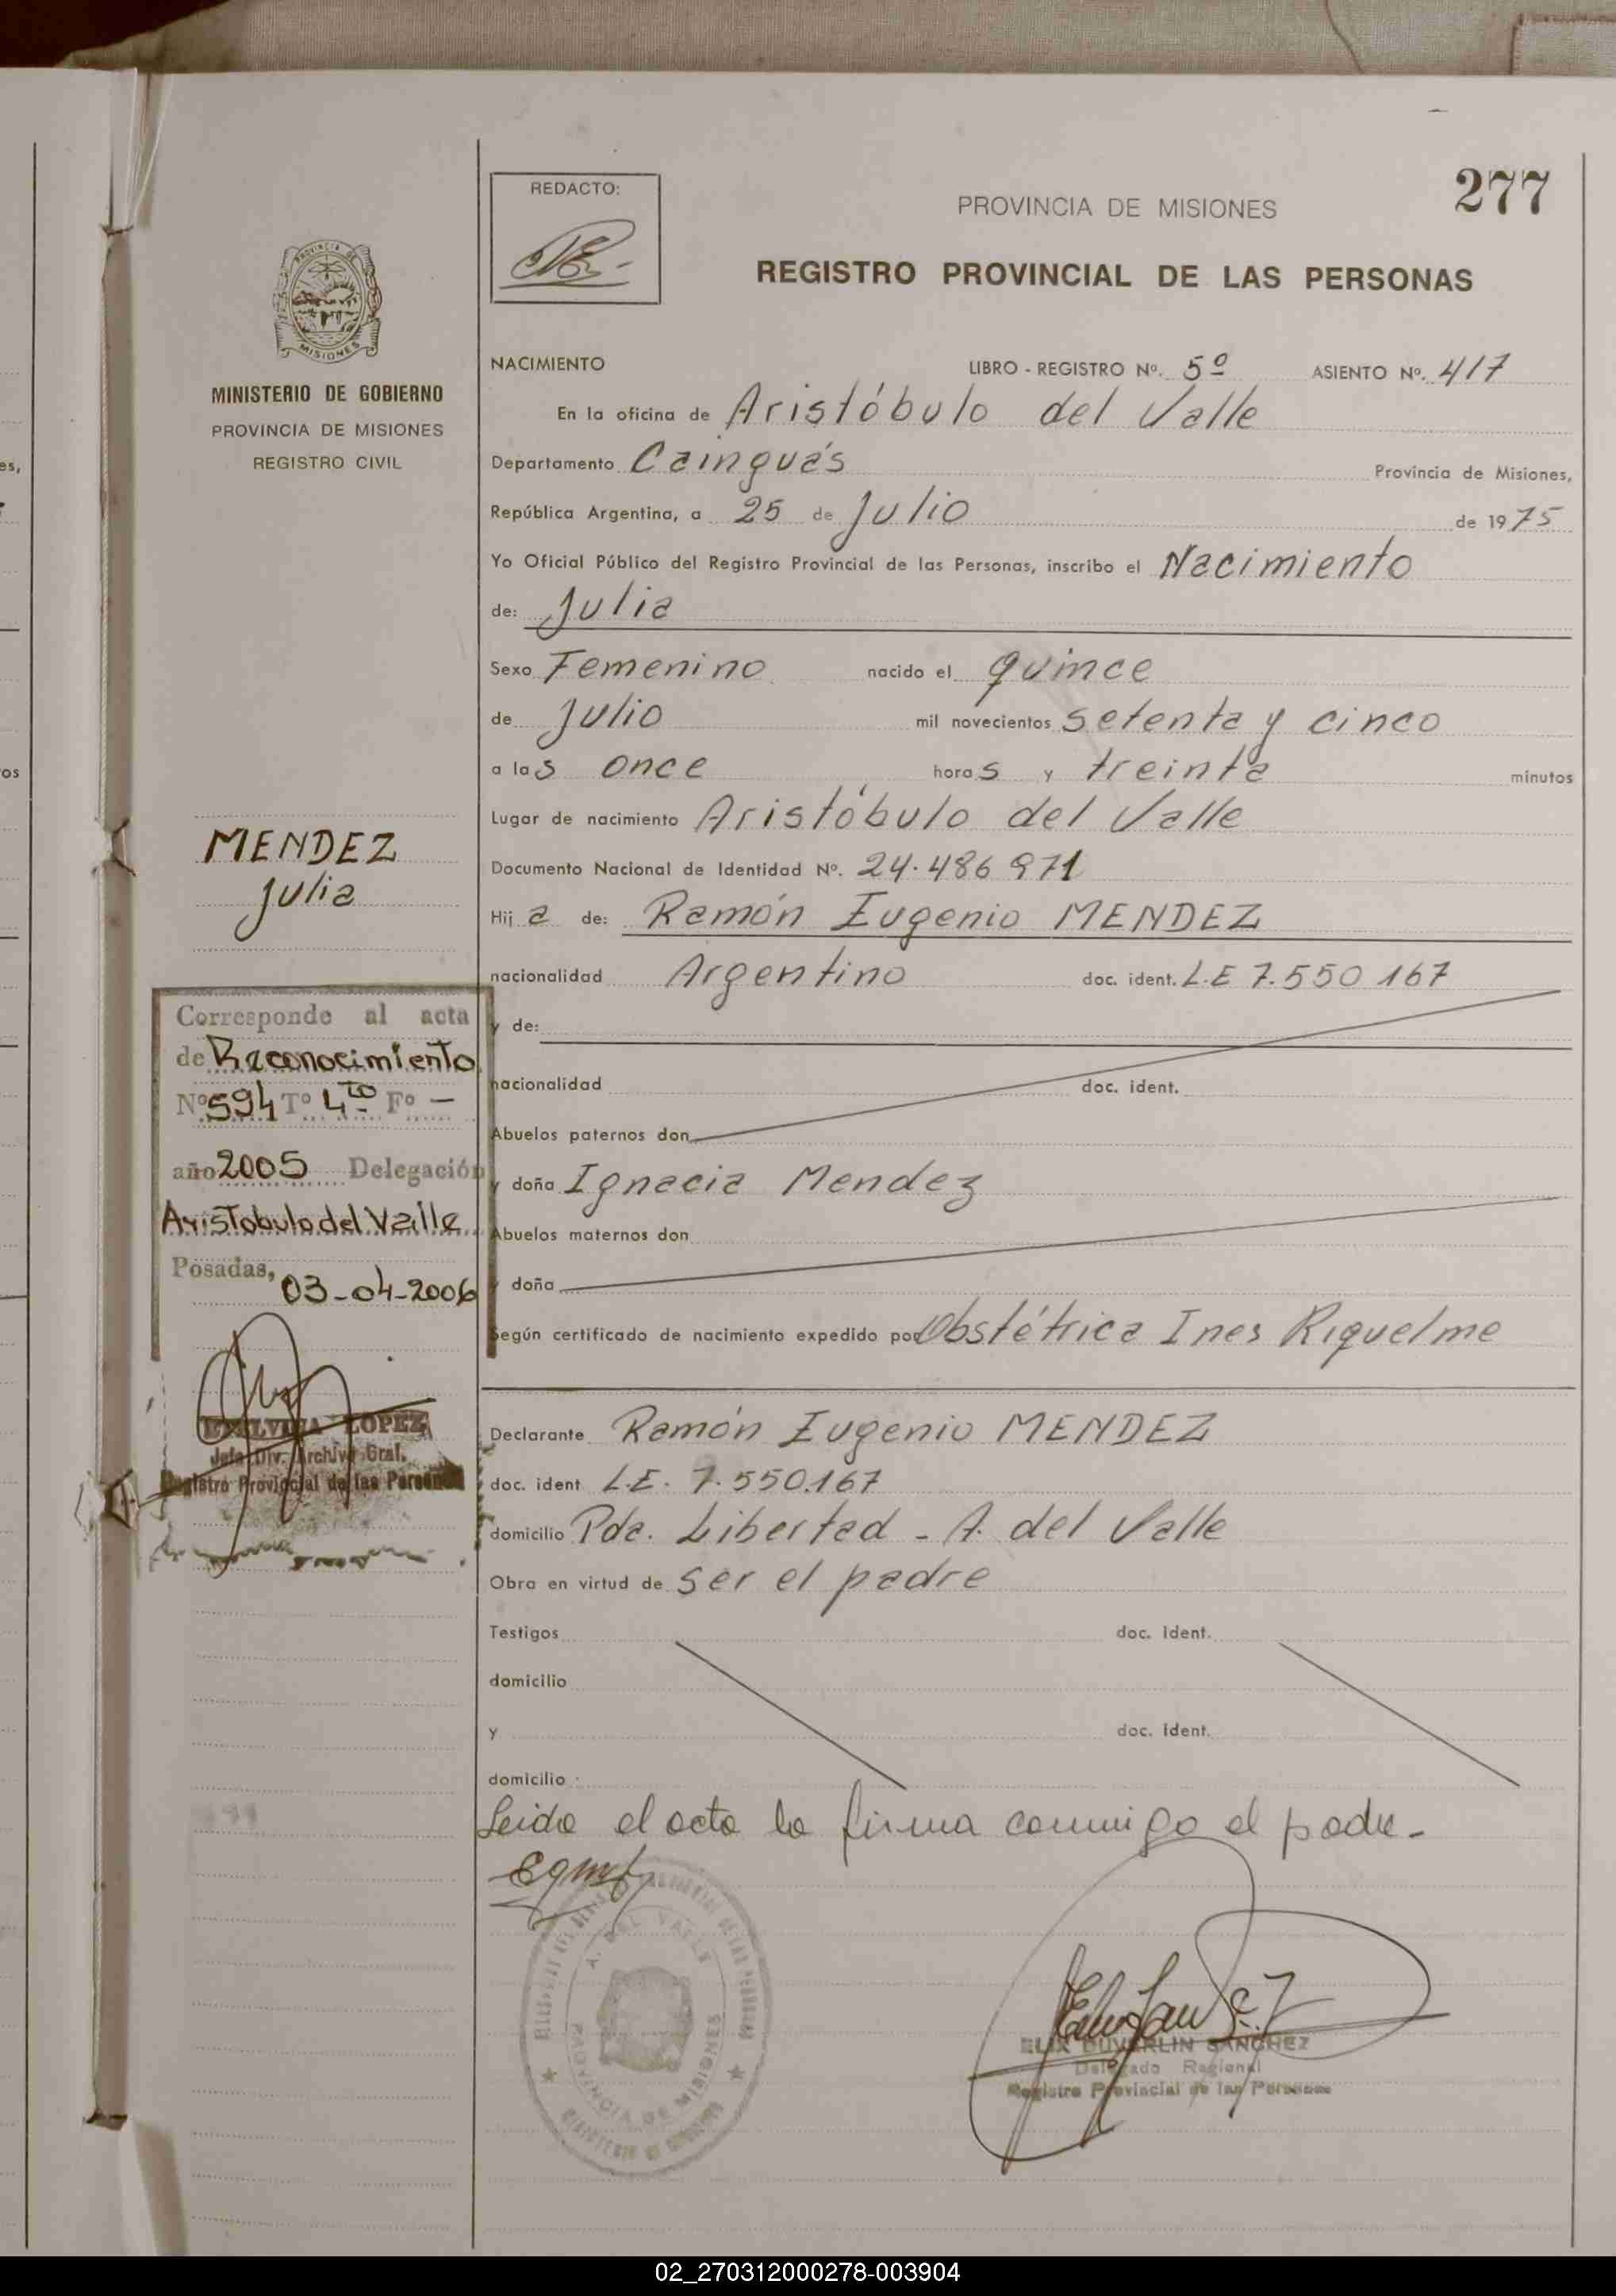 277
REDACTO:
PROVINCIA DE MISIONES
REGISTRO PROVINCIAL DE LAS PERSONAS
PROVINCIA DE
MISIONES
MINISTERIO DE GOBIERNO
PROVINCIA DE MISIONES
REGISTRO CIVIL
NACIMIENTO LIBRO - REGISTRO Nº. 5º ASIENTO Nº. 417
En la oficina de Aristóbulo del Valle
Departamento Cainguás Provincia de Misiones,
República Argentina, a 25 de Julio de 1975
Yo Oficial Público del Registro Provincial de las Personas, inscribo el Nacimiento
de: Julia
Sexo Femenino nacido el quince
de Julio mil novecientos setenta y cinco
a las once horas y treinta minutos
Lugar de nacimiento Aristóbulo del Valle
Documento Nacional de Identidad Nº. 24.486 971
Hija de: Ramón Eugenio MENDEZ
nacionalidad Argentino doc. ident. L.E 7.550 167
y de:
nacionalidad doc. ident.
Abuelos paternos don
y doña Ignacia Mendez
Abuelos maternos don
y doña
Según certificado de nacimiento expedido por Obstétrica Ines Riquelme
MENDEZ
Julia
Corresponde al acta
de Reconocimiento
Nº 594 Tº 4to Fº —
año 2005 Delegación
Aristobulo del Valle
Posadas, 03-04-2006
LOPEZ
Jefa Div. Archivo Gral.
Registro Provincial de las Personas
Declarante Ramón Eugenio MENDEZ
doc. ident L.E. 7.550.167
domicilio Pda. Libertad - A. del Valle
Obra en virtud de ser el padre
Testigos doc. ident.
domicilio
y doc. ident.
domicilio
Leida el acta la firma conmigo el padre.
A. DEL VALLE
PROVINCIA DE MISIONES
SANCHEZ
Delegado Regional
Registro Provincial de las Personas
02_270312000278-003904